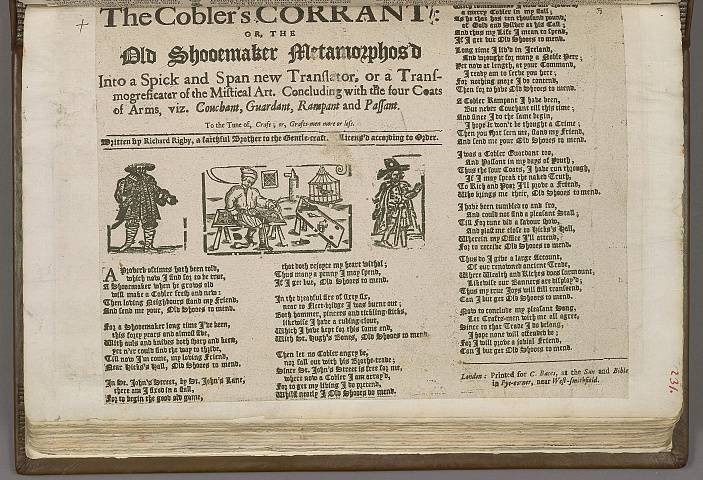 The Cobler's CORRANT:
OR, THE
Old Shooemaker Metamorphos'd
Into a Spick and Span new Translator, or a Transmogreficater of the Mistical Art. Concluding with the four Coats
of Arms, viz. Couchant, Guardant, Rampant and Passant.
To the Tune of, Craft; or, Crafts-men more or less.
Written by Richard Rigby, a faithful Brother to the Gentle-craft. Licens'd according to Order.
A Proverb oftimes hath been told,
which now I find for to be true,
A Shooemaker when he grows old
will make a Cobler stead and new:
Then loving Neighbours stand my Friend,
And send me your, Old Shooes to mend.
For a Shooemaker long time I've been,
this forty years and almost five,
With auls and knives both sharp and keen,
yet n'er could find the way to thrive,
Till now I'm come, my loving Friend,
Near Hicks's Hall, Old Shooes to mend.
In St. John's Street, by St. John's Lane,
there am I fixed in a stall,
For to begin the good old game,
that doth rejoyce my heart withal;
Thus many a penny I may spend,
If I get but, Old Shooes to mend.
In the dreadful fire of sixty six,
near to Fleet-bridge I was burnt out;
Both hammer, pincers and stickling-sticks,
likewise I have a rubing-clout,
Which I have kept for this same end,
With St. Hugh's Bones, Old Shooes to mend.
Then let no Cobler angry be,
nor fall out with his Brother-trade;
Since St. John's Street is free for me,
where now a Cobler I am array'd,
For to get my living I do pretend,
Whilst neatly I Old Shooes do mend.
a merry Cobler in my stall;
As he that has ten thousand pound,
of Gold and Silver at his Call;
And thus my Life I mean to spend,
If I get but Old Shooes to mend.
Long time I liv'd in Ireland,
And wrought for many a Noble Peer;
Yet now at length, at your Command,
I ready am to serve you here;
For nothing more I do contend,
Then for to have Old Shooes to mend.
A Cobler Rampant I have been,
But never Couchant till this time;
And since I do the same begin,
I hope it won't be thought a Crime;
Then you that seem me, stand my Friend,
And send me your Old Shooes to mend.
I was a Cobler Guardant too,
And Passant in my days of Youth;
Thus the four Coats, I have run through,
If I may speak the naked Truth,
To Rich and Poor I'll prove a Friend,
Who brings me their, Old Shooes to mend.
I have been tumbled to and fro,
And could not find a pleasant Stall;
Till Fortune did a favour show,
And plast me close to Hicks's Hall,
Wherein my Office I'll attend,
For to receive Old Shooes to mend.
Thus do I give a large Account,
Of our renowned ancient Trade,
Where Wealth and Riches does surmount,
Likewise our Banners are display'd;
Thus my true Joys will still transcend,
Can I but get Old Shooes to mend.
Now to conclude my pleasant Song,
Let Crafts-men with me all agree,
Since to that Trade I do belong,
I hope none will offended be;
For I will prove a jovial Friend,
Can I but get Old Shooes to mend.
London: Printed for C. Bates, at the Sun and Bible
in Pye-corner, near West-smithfield.
231.